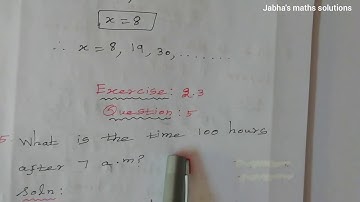 Jabha's maths solutions
x = 8
∴ x = 8, 19, 30, .......
Exercise: 2.3
Question: 5
5 What is the time 100 hours
after 7 a.m?
Soln: